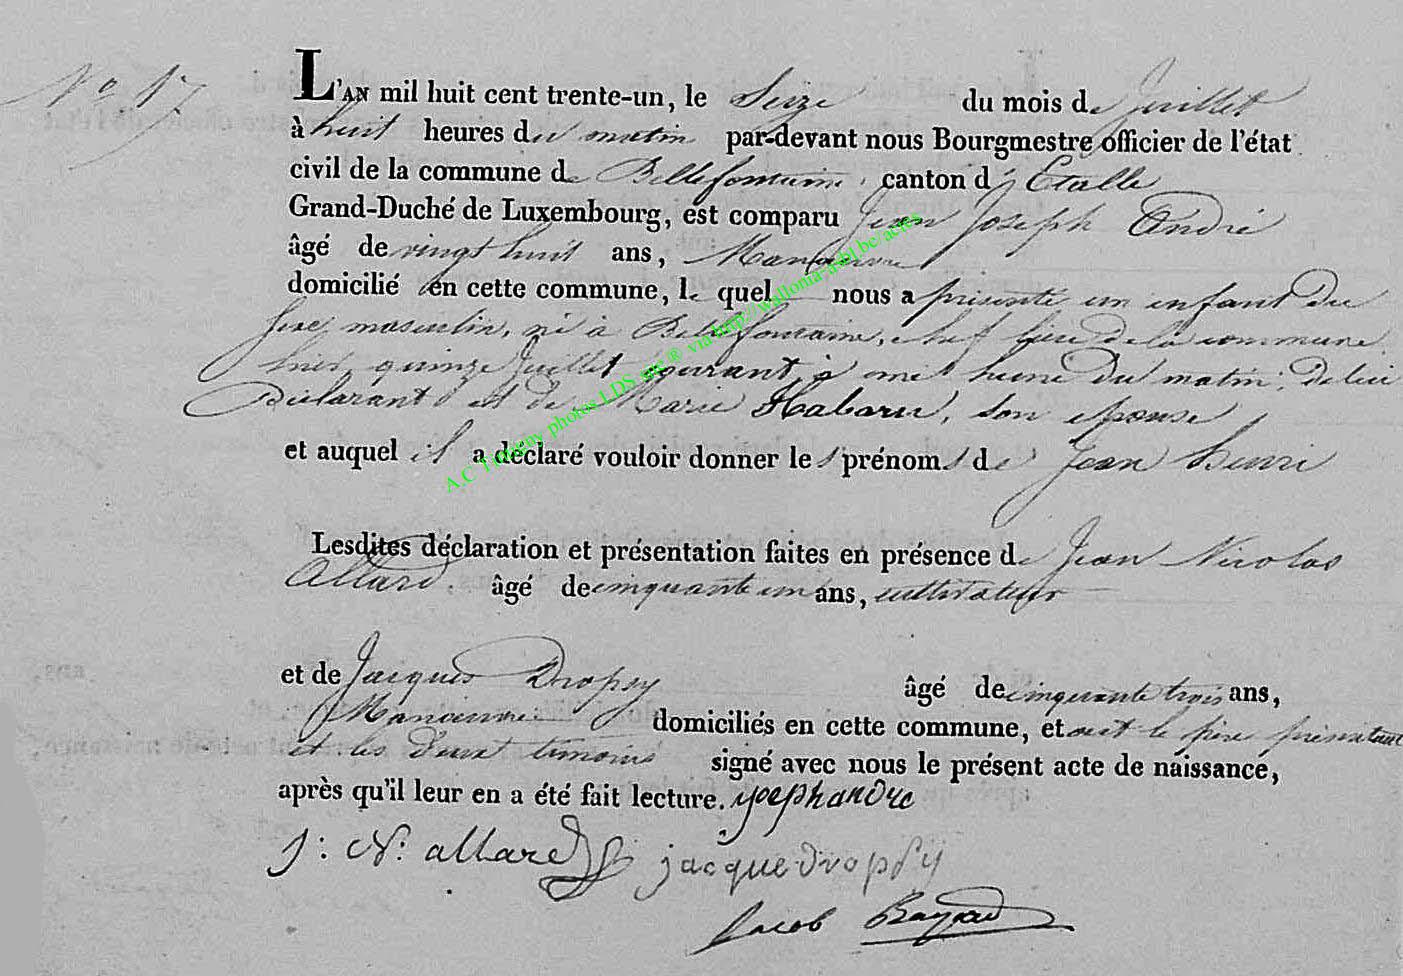 No 17
L'AN mil huit cent trente-un, le Seize du mois de Juillet
à huit heures du matin par-devant nous Bourgmestre officier de l'état
civil de la commune de Bellefontaine, canton d'Etalle
Grand-Duché de Luxembourg, est comparu Jean Joseph André
âgé de vingt huit ans, Manœuvre
domicilié en cette commune, le quel nous a présenté un enfant du
sexe masculin, né à Bellefontaine, chef lieu de la commune
hier, quinze Juillet courant à onze heures du matin, de lui
Déclarant et de Marie Habaru, son epouse
et auquel il a déclaré vouloir donner les prénoms de Jean henri
Lesdites déclaration et présentation faites en présence de Jean Nicolas
Allard. âgé de cinquante un ans, cultivateur
et de Jacques Dropsy âgé de cinquante trois ans,
Manœuvre domiciliés en cette commune, et ont le père présentant
et les deux temoins signé avec nous le présent acte de naissance,
après qu'il leur en a été fait lecture. josephandre
J: N: allard jacque dropsy
Jacob
A.C Tintigny photos LDS site ® via http://wallonia-asbl.be/actes